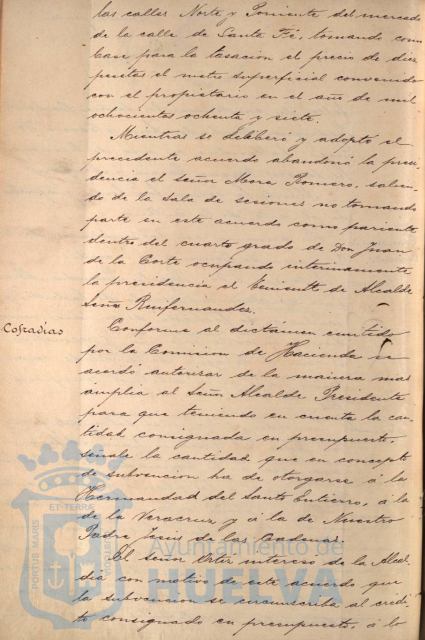 las calles Norte y Poniente del mercado
de la calle de Santa Fé, tomando como
base para la tasación el precio de diez
pesetas el metro superficial convenido
con el propietario en el año de mil
ochocientos ochenta y siete.
Mientras se deliberó y adoptó el
precedente acuerdo abandonó la presi-
dencia el señor Mora Romero, salien-
do de la Sala de sesiones no tomando
parte en este acuerdo como pariente
dentro del cuarto grado de Don Juan
de la Corte ocupando interinamente
la presidencia el Teniente de Alcalde
Señor Ruifernandez.
Cofradías
Conforme al dictámen emitido
por la Comision de Hacienda se
acordó autorizar de la manera mas
amplia al Señor Alcalde Presidente
para que teniendo en cuenta la can-
tidad consignada en presupuesto,
señale la cantidad que en concepto
de subvencion ha de otorgarse á la
Hermandad del Santo Entierro, á la
de la Veracruz y á la de Nuestro
Padre Jesus de las Cadenas.
El Señor interesó de la Alcal-
día con motivo de este acuerdo que
la subvencion se circunscriba al crédi-
to consignado en presupuesto, á lo
PORTUS MARIS
ET TERRÆ
CUSTODIA
Ayuntamiento de
HUELVA